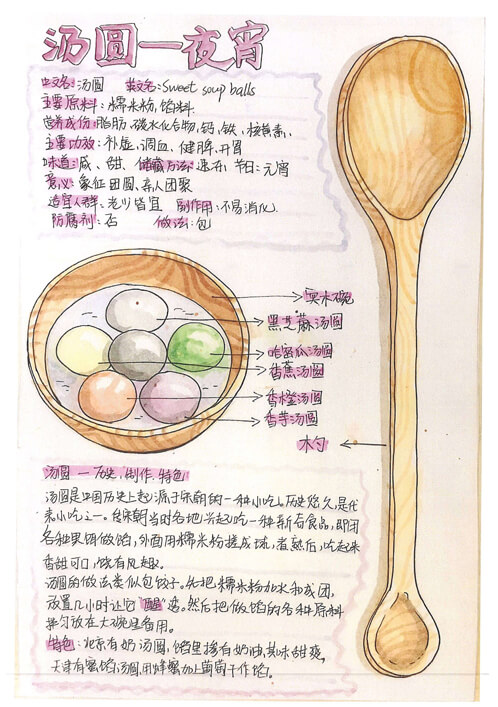 汤圆—夜宵
中文名:汤圆 英文名:Sweet soup balls
主要原料:糯米粉,馅料
营养成份:脂肪、碳水化合物,钙,铁,核黄素、
主要功效:补虚,调血、健脾、开胃
味道:咸、甜、储藏方法:速冻 节日:元宵
意义:象征团圆、亲人团聚
适宜人群:老少皆宜 副作用:不易消化.
防腐剂:否 做法:包
实木碗
黑芝麻汤圆
哈密瓜汤圆
香蕉汤圆
香橙汤圆
香芋汤圆
木勺
汤圆—历史,制作,特色
汤圆是中国历史上起源于宋朝的一种小吃。历史悠久,是代
表小吃之一。宋朝当时各地兴起吃一种新奇食品,即用
各种果饵做馅,外面用糯米粉搓成球,煮熟后,吃起来
香甜可口,饶有风趣.
汤圆的做法类似包饺子.先把糯米粉加水和成团,
放置几小时让它"醒"透.然后把做馅的各种原料
拌匀放在大碗里备用。
特色:北京有奶汤圆,馅里掺有奶油,其味甜爽。
天津有蜜馅汤圆,用蜂蜜加上葡萄干作馅。